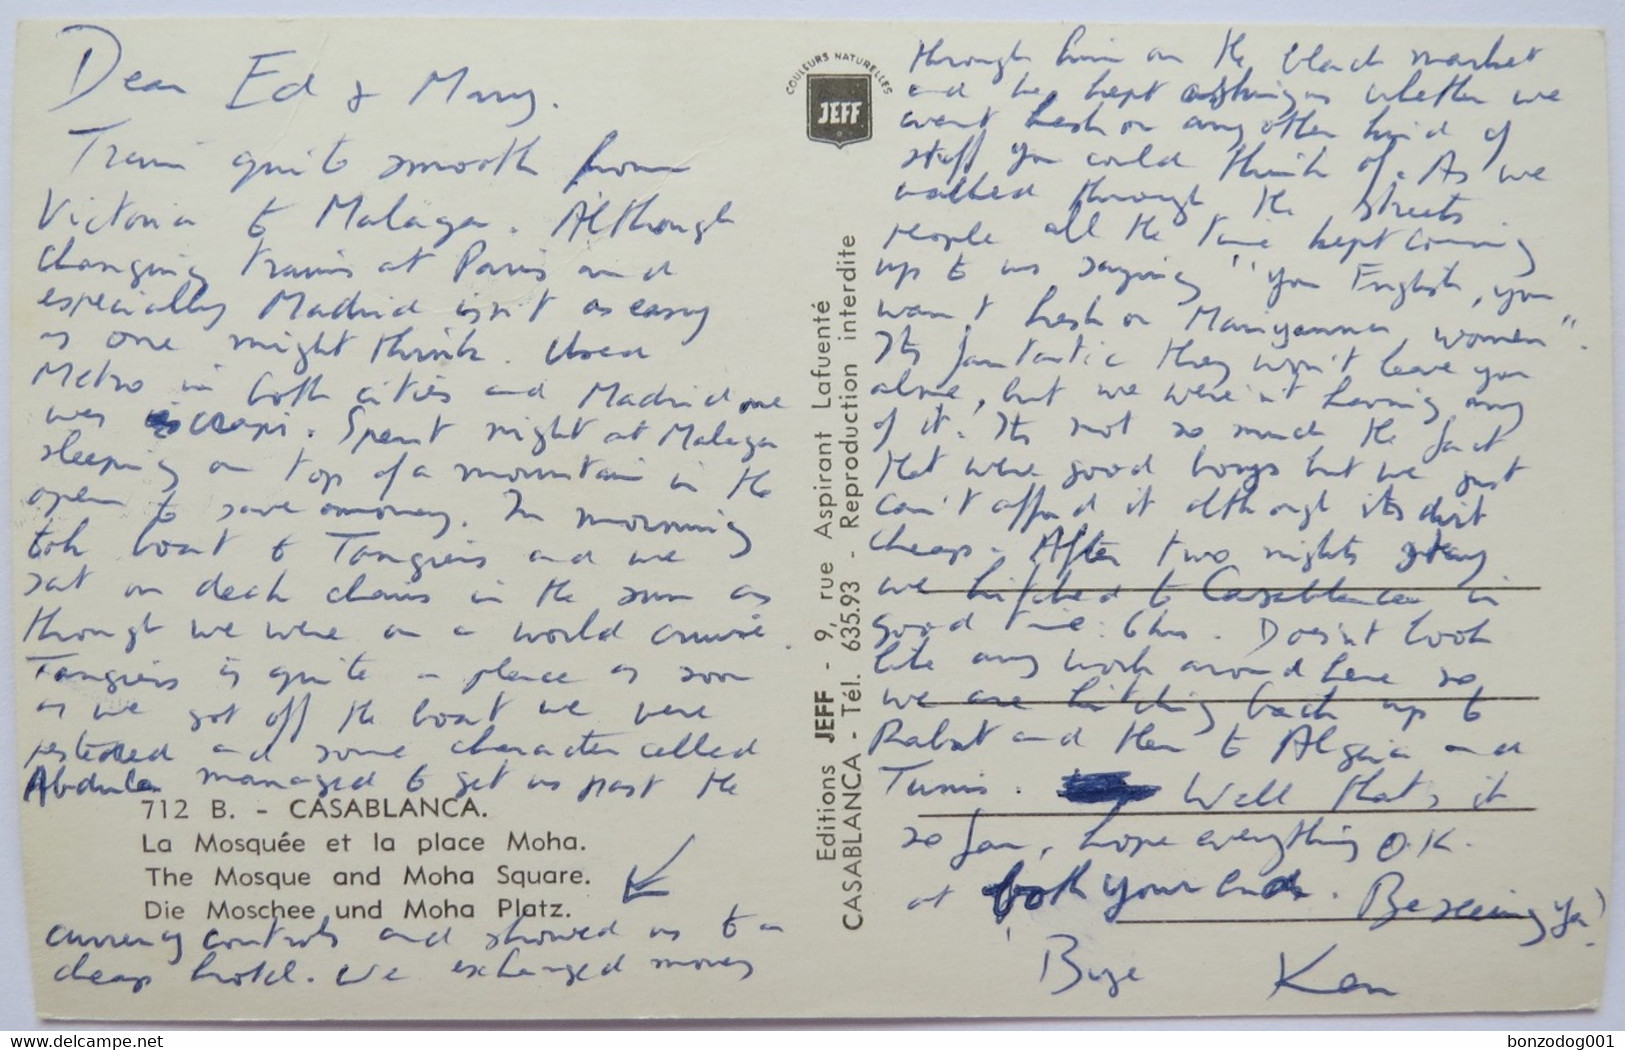 Dear Ed & Mary.
Train quite smooth from
Victoria to Malaga. Although
changing trains at Paris and
especially Madrid isn't as easy
as one might think. Used
Metro in both cities and Madrid one
was crap. Spent night at Malaga
sleeping on top of a mountain in the
open to save money. In morning
took boat to Tangiers and we
sat on deck chairs in the sun as
though we were on a world cruise.
Tangiers is quite a place as soon
as we got off the boat we were
pestered and some character called
Abdula managed to get us past the
712 B. - CASABLANCA.
La Mosquée et la place Moha.
The Mosque and Moha Square.
Die Moschee und Moha Platz.
currency controls and showed us to a
cheap hotel. We exchanged money
COULEURS NATURELLES
JEFF
Editions JEFF - 9, rue Aspirant Lafuenté
CASABLANCA - Tél. 635.93 - Reproduction interdite
through him on the black market
and he kept asking us whether we
want hash or any other kind of
stuff you could think of. As we
walked through the streets
people all the time kept coming
up to us saying "you English, you
want hash or women".
Its fantastic they won't leave you
alone, but we weren't having any
of it. Its not so much the fact
that were good boys but we just
can't afford it although its dirt
cheap. After two nights stay
we hitched to Casablanca in
good time: 6hrs. Doesnt look
like any work around here so
we are hitching back up to
Rabat and then to Algeria and
Tunis. Well that's it
so far, hope everything O.K.
at your end. Be seeing ya!
Bye Ken
https://www.delcampe.net
bonzodog001